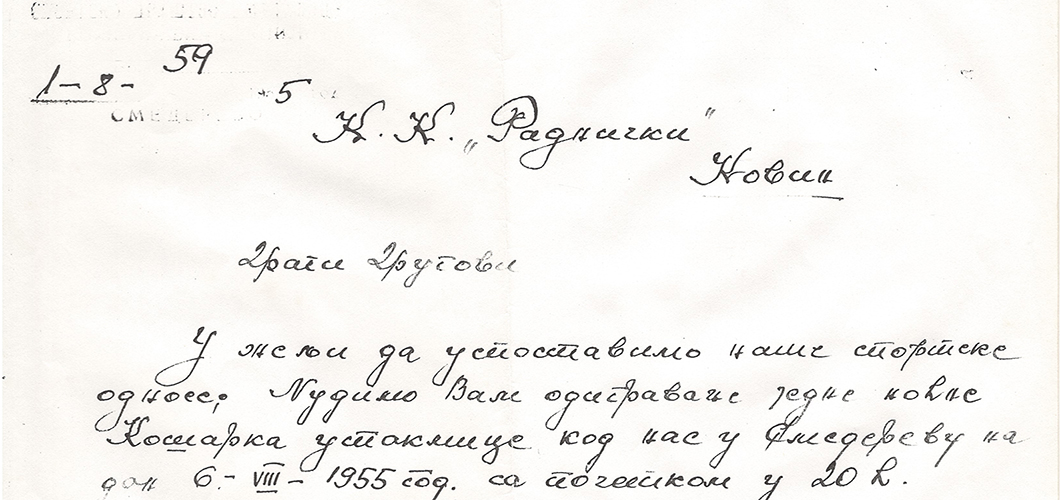 1-8- 595
К. К. „Раднички"
Ковин
Драги Другови
У жељи да успоставимо наше спортске
односе, Нудимо Вам одигравање једне ноћне
Кошарка утакмице код нас у Смедереву на
дан 6.- VIII - 1955 год. са почетком у 20 h.